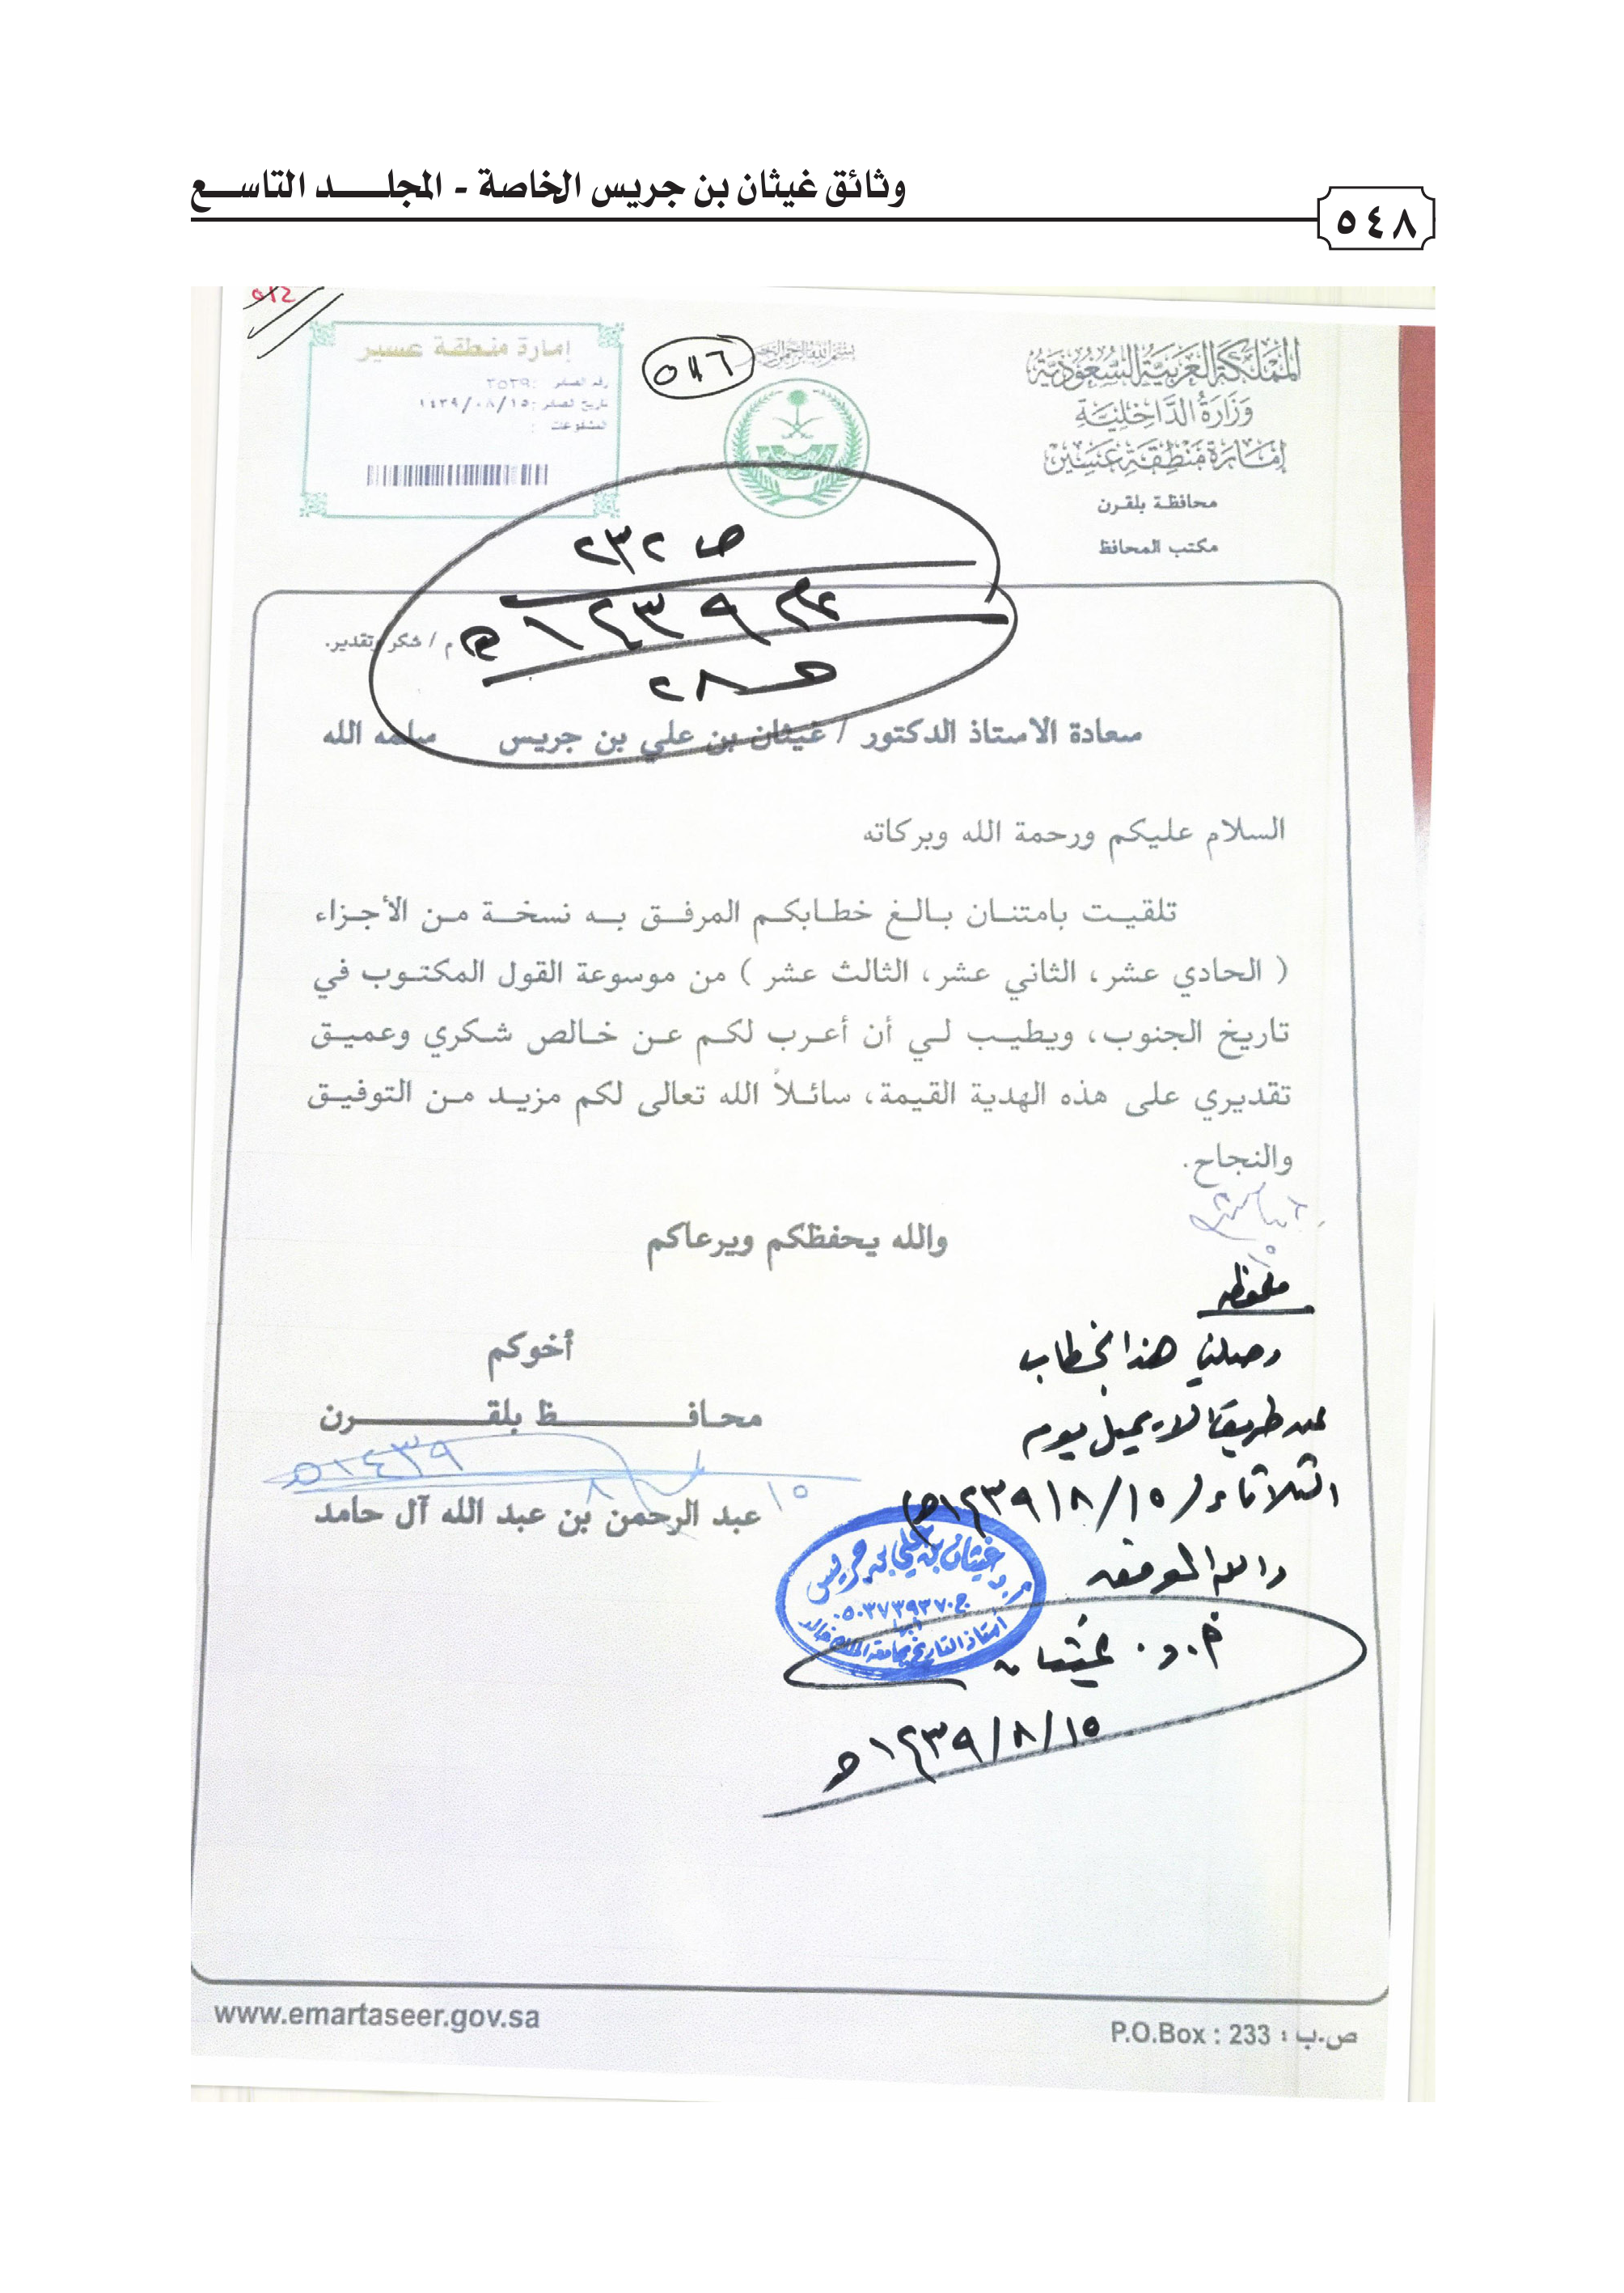 وثائق غيثان بن جريس الخاصة - المجلد التاسع
٥٤٨
المملكة العربية السعودية
وزارة الداخلية
إمارة منطقة عسير
محافظة بلقرن
مكتب المحافظ
بسم الله الرحمن الرحيم
إمارة منطقة عسير
رقم الصادر : ٣٥٣٩
تاريخ الصادر : ١٤٣٩/٠٨/١٥
المشفوعات :
ص ٢٣٢
م / شكر وتقدير.
سعادة الاستاذ الدكتور / غيثان بن علي بن جريس سلمه الله
السلام عليكم ورحمة الله وبركاته
تلقيت بامتنان بالغ خطابكم المرفق به نسخة من الأجزاء
( الحادي عشر، الثاني عشر، الثالث عشر ) من موسوعة القول المكتوب في
تاريخ الجنوب، ويطيب لي أن أعرب لكم عن خالص شكري وعميق
تقديري على هذه الهدية القيمة، سائلاً الله تعالى لكم مزيد من التوفيق
والنجاح.
والله يحفظكم ويرعاكم
أخوكم
محافظ بلقرن
١٥ ٨ ١٤٣٩ه
عبد الرحمن بن عبد الله آل حامد
ملحوظه
وصلني هذا الخطاب
عن طريق الايميل يوم
الثلاثاء (١٥/٨/١٤٣٩ه)
والله الموفق
أ.د. غيثان
١٥/٨/١٤٣٩ه
أ.د غيثان بن علي بن جريس
ج ٠٥٠٣٧٣٩٣٧٠
أستاذ التاريخ بجامعة الملك خالد
www.emartaseer.gov.sa
P.O.Box : 233 : ص.ب